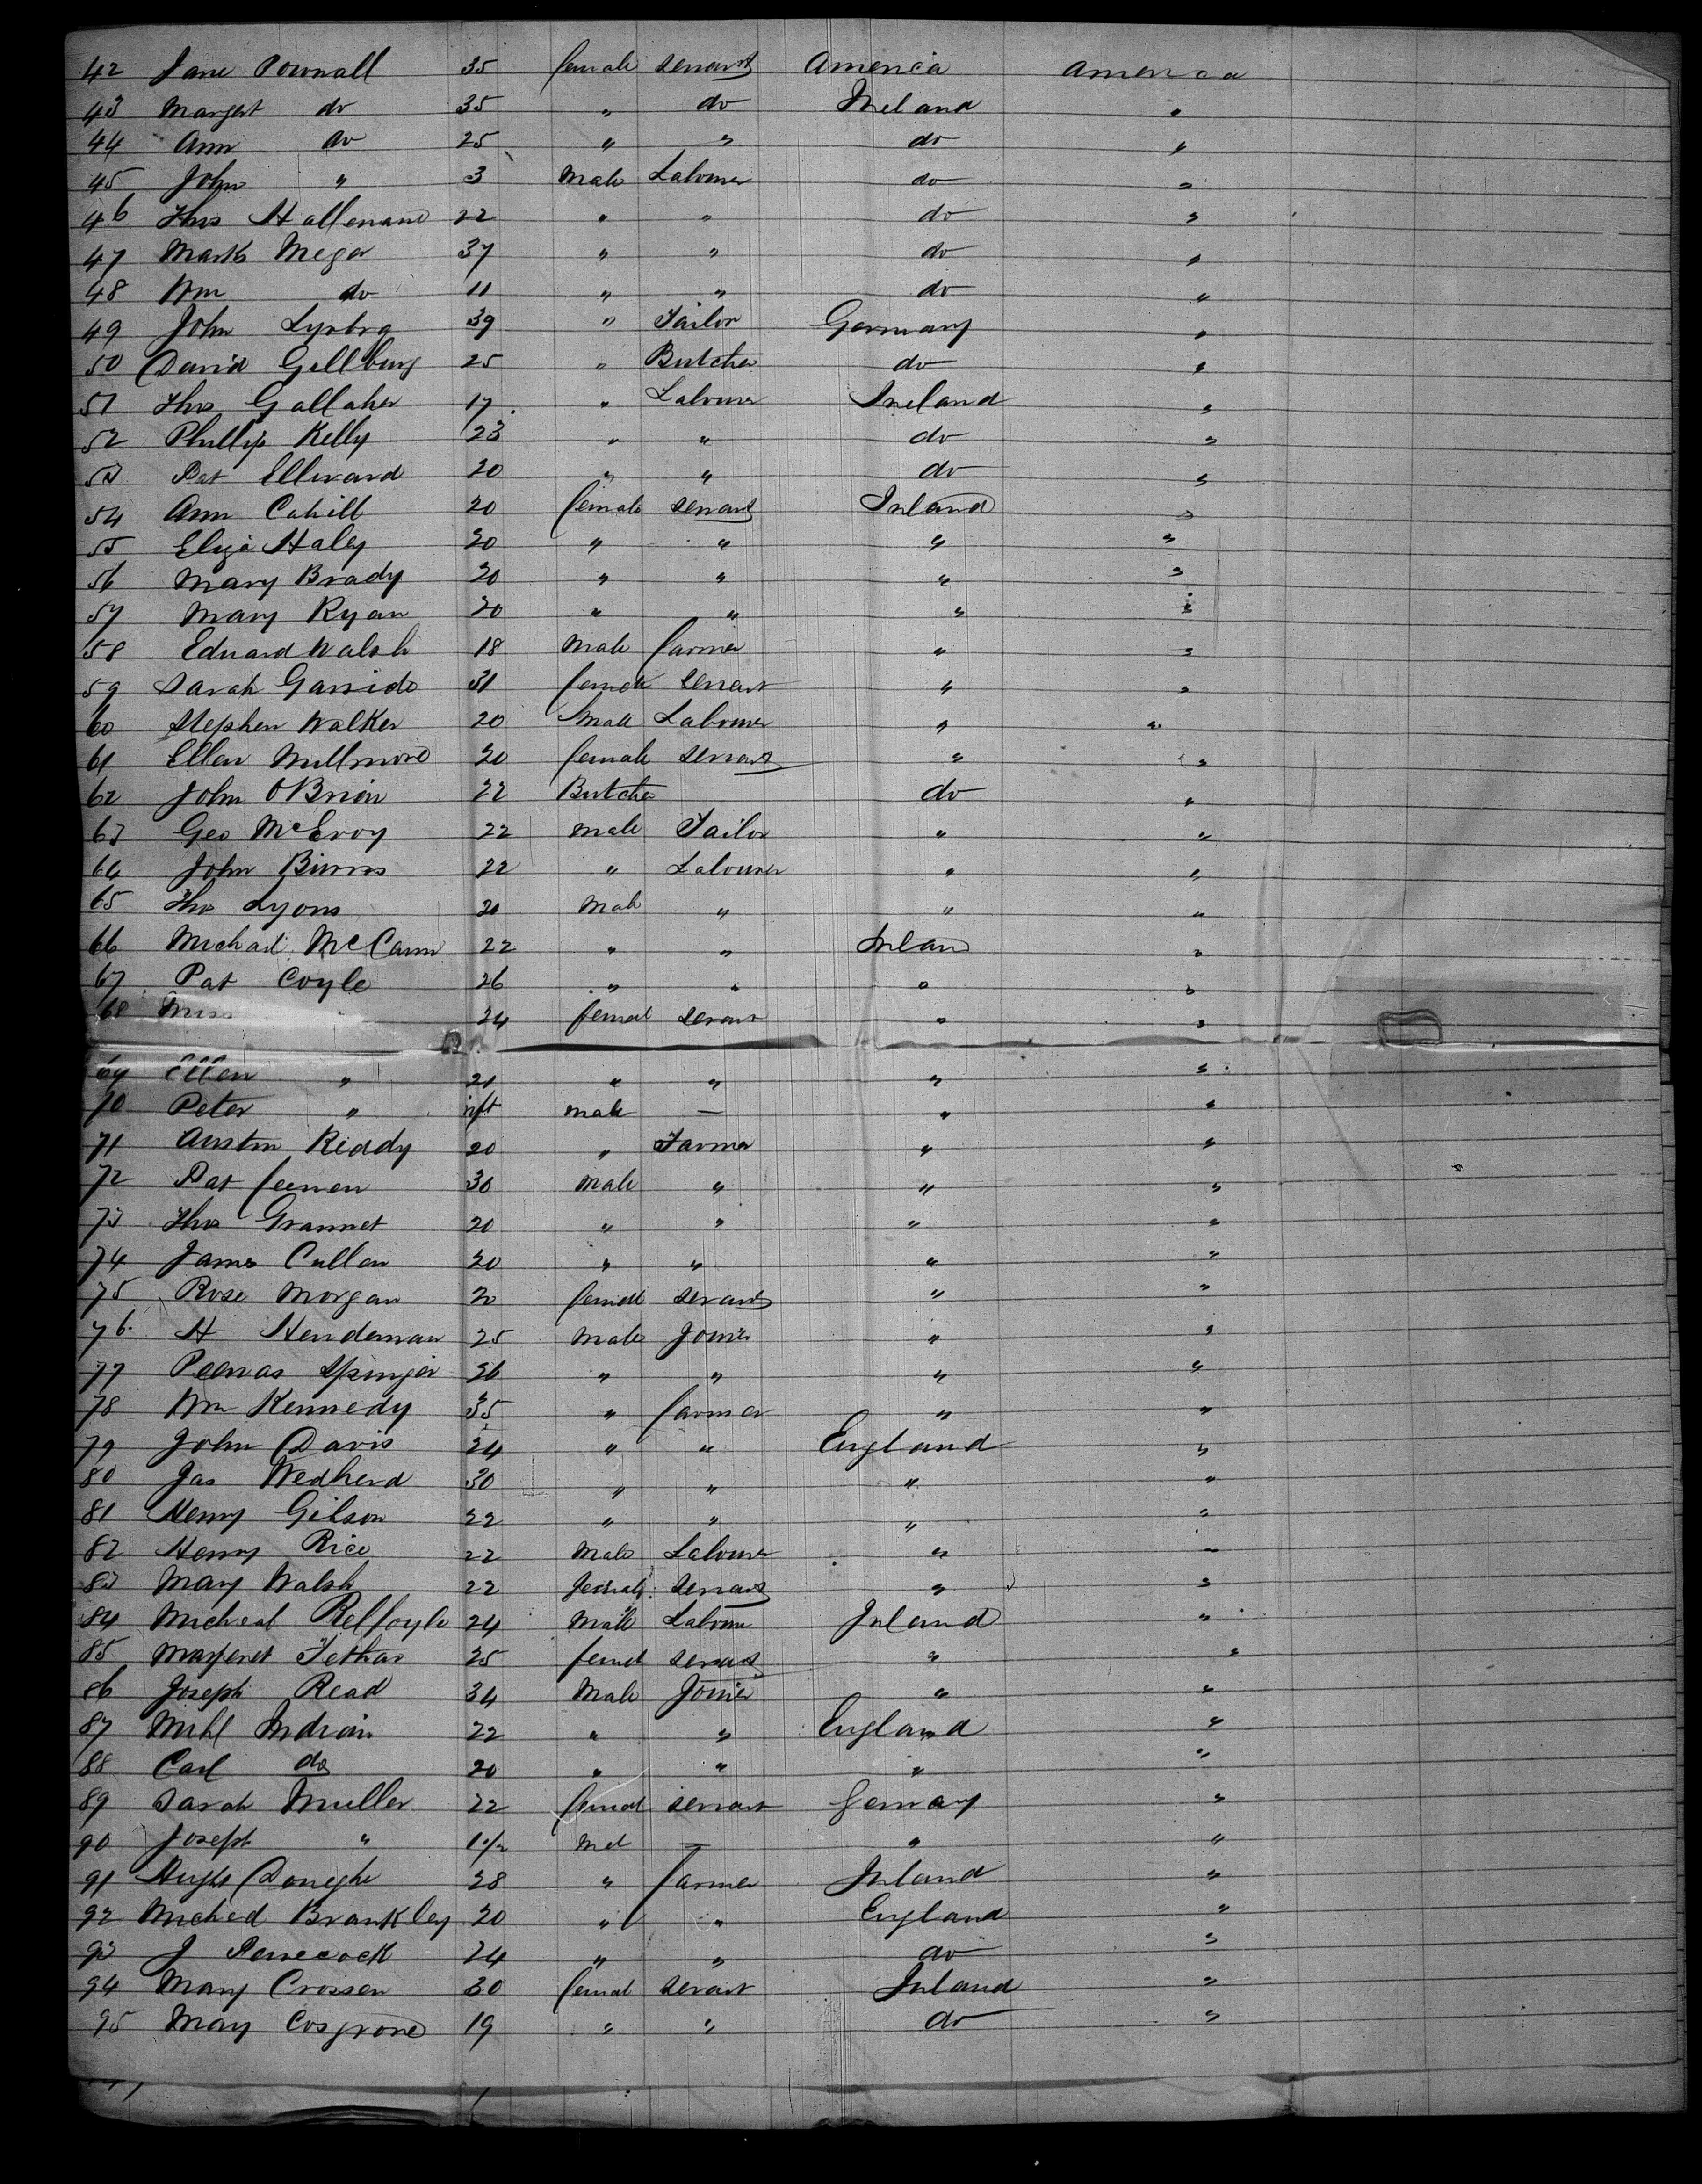 42 Jane Pownall 35 female servant America America
43 Margert do 35 " do Ireland "
44 Ann do 25 " " do "
45 John " 3 Male Labourer do "
46 Thos Hallenand 22 " " do "
47 Mark Megar 37 " " do "
48 Wm do 11 " " do "
49 John Lynbrg 39 " Tailor Germany "
50 David Gellburg 25 " Butcher do "
51 Thos Gallaher 17 " Labourer Ireland "
52 Phillip Kelly 23 " " do "
53 Pat Ellward 20 " " do "
54 Ann Cahill 20 female servant Ireland "
55 Eliza Haley 20 " " " "
56 Mary Brady 20 " " " "
57 Mary Ryan 20 " " " "
58 Edward Walsh 18 Male farmer " "
59 Sarah Garside 31 female servant " "
60 Stephen Walker 20 Male Labourer " "
61 Ellen Mullmore 20 female servant " "
62 John OBrien 22 Butcher do "
63 Geo McEvoy 22 male Tailor " "
64 John Binns 22 " Labourer " "
65 Tho Lyons 20 Male " " "
66 Michael McCann 22 " " Ireland "
67 Pat Coyle 26 " " " "
68 24 female servant " "
69 Ellen " 21 " " " "
70 Peter " inft male — " "
71 Austin Reddy 20 " Farmer " "
72 Pat 30 male " " "
73 Thos Grannet 20 " " " "
74 James Cullen 20 " " " "
75 Rose Morgan 20 female servant " "
76 H Hendeman 25 Male Joiner " "
77 Springer 26 " " " "
78 Wm Kennedy 35 " farmer " "
79 John Davis 24 " " England "
80 Jas Wedherd 30 " " " "
81 Henry Gibson 22 " " " "
82 Henry Rice 22 Male Labourer " "
83 Mary Walsh 22 female servant " "
84 Micheal 24 Male Labourer Ireland "
85 Margeret 25 femal servant " "
86 Joseph Read 34 Male Joiner " "
87 Indrain 22 " " England "
88 Carl do 20 " " " "
89 Sarah Muller 22 femal servant Germany "
90 Joseph " 1 1/2 Mal — " "
91 Hugh Doneghe 28 " farmer Ireland "
92 Micheal Brankley 20 " " England "
93 J Pennecock 24 " " do "
94 Mary Crossen 30 femal servant Ireland "
95 Mary Cosgrove 19 " " do "